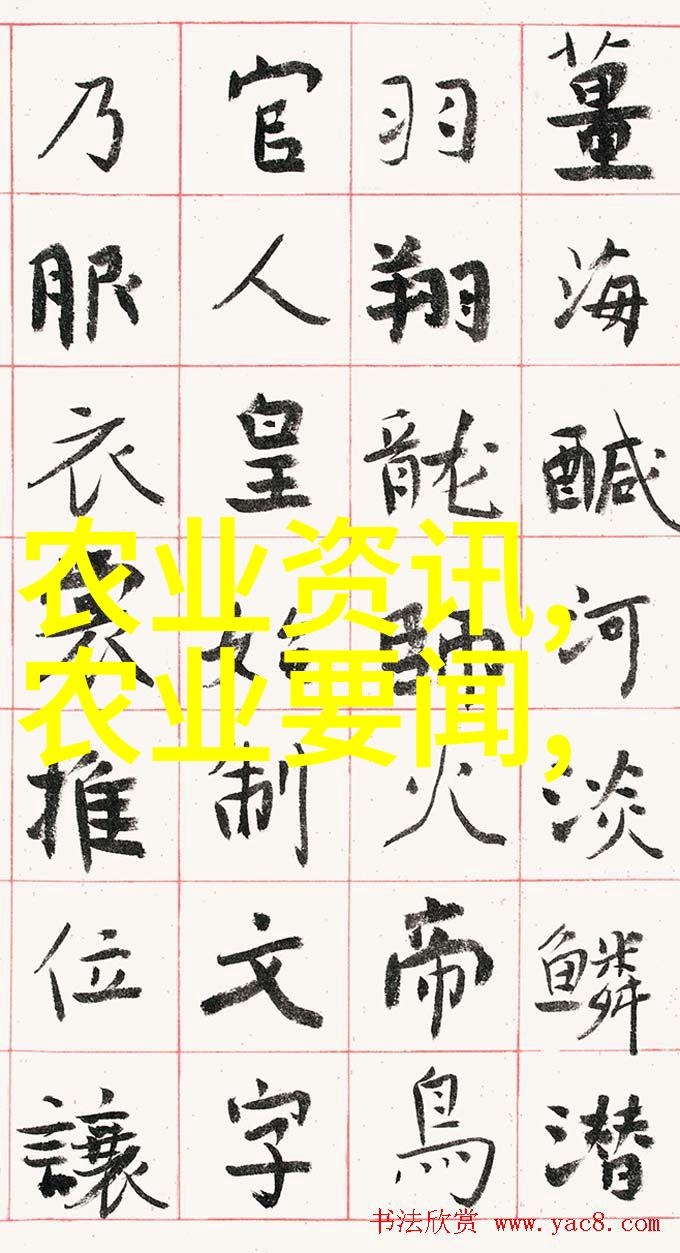 薑海醎河淡鱗潜
羽翔龍師火帝鳥
官人皇始制文字
乃服衣裳推位讓
农业资讯,
农业要闻,
书法欣赏 www.yac8.com